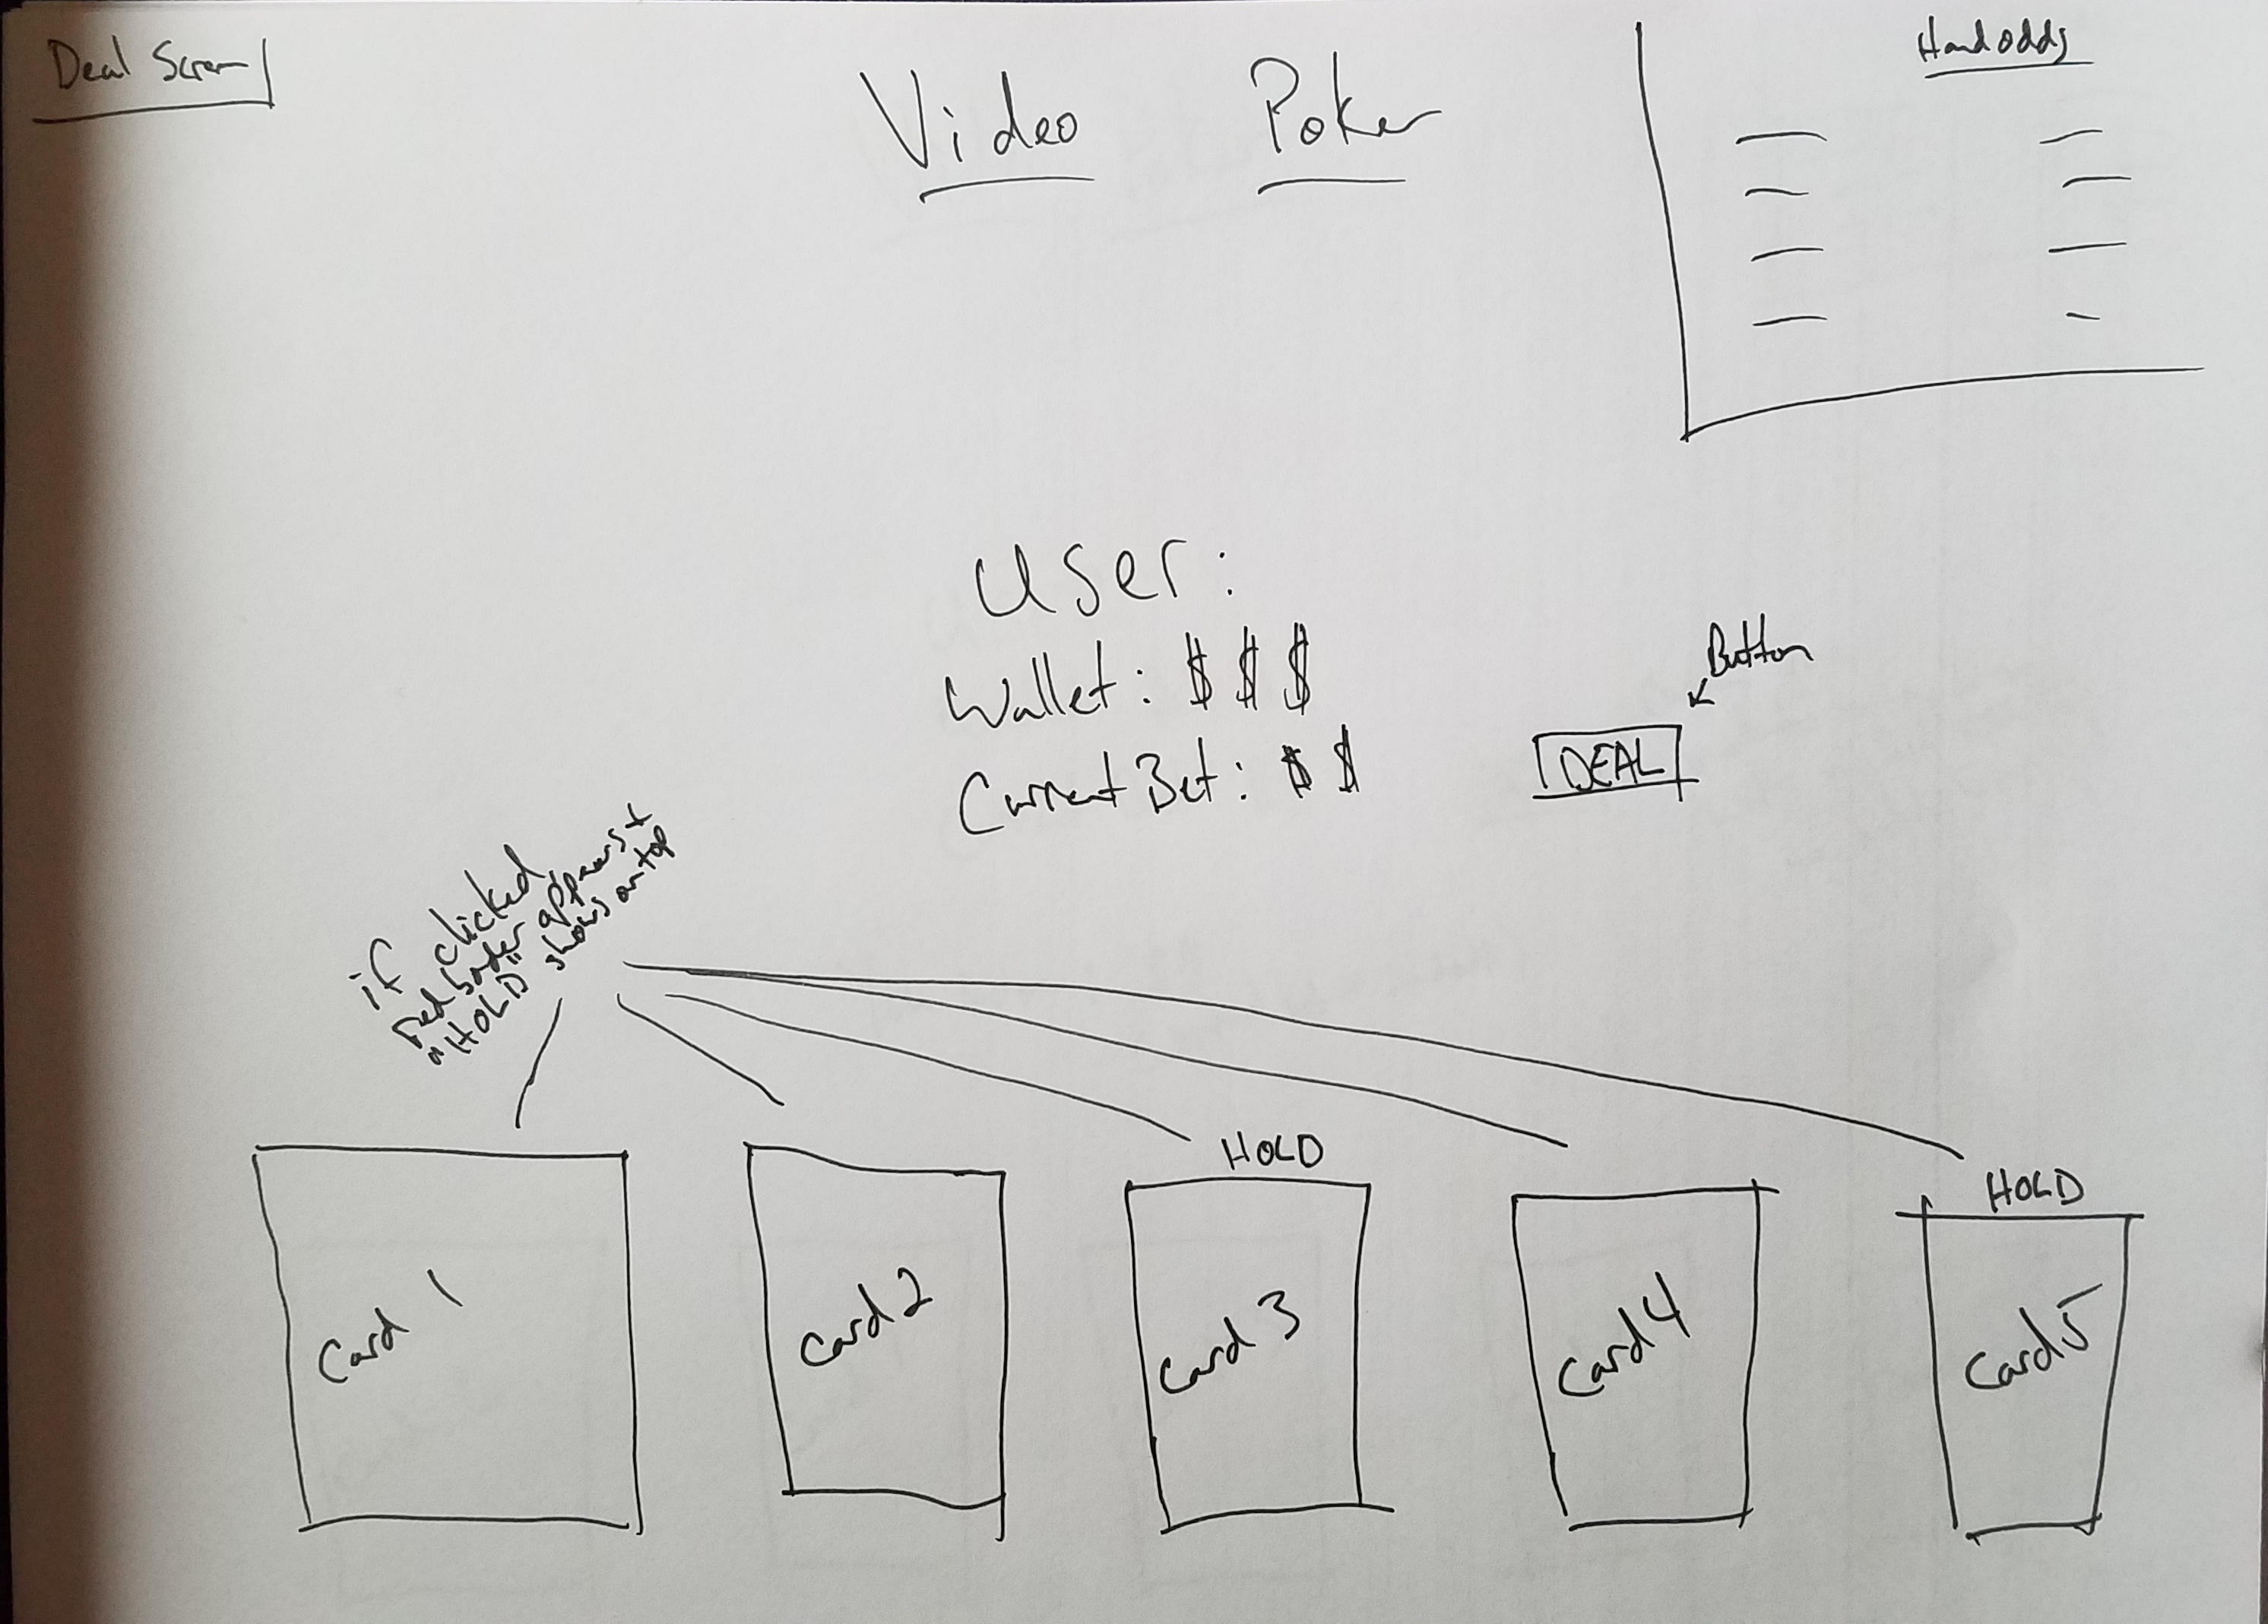 Deal Screen
Video Poker
Hand odds
User:
Wallet: $ $ $
Current Bet: $ $
Button
DEAL
if clicked
red border appears +
"HOLD" shows on top
HOLD
HOLD
Card 1
Card 2
Card 3
Card 4
Card 5